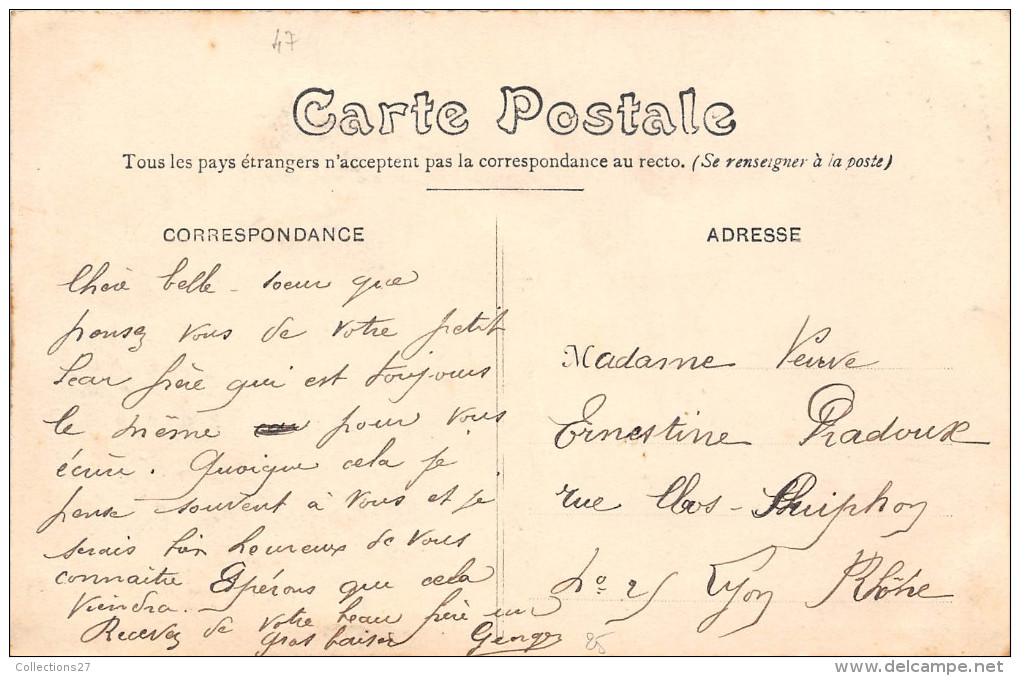 47
Carte Postale
Tous les pays étrangers n'acceptent pas la correspondance au recto. (Se renseigner à la poste)
CORRESPONDANCE
Chère belle-soeur que
pensez vous de votre petit
beau frère qui est toujours
le même pour vous
écrire. Quoique cela je
pense souvent à vous et je
serais bien heureux de vous
connaitre Espérons que cela
viendra.
Recevez de votre beau frère un
gros baiser Georges
ADRESSE
Madame Veuve
Ernestine Pradoux
rue Clos-Suiphon
no 25 Lyon Rhône
Collections27
delcampe.net